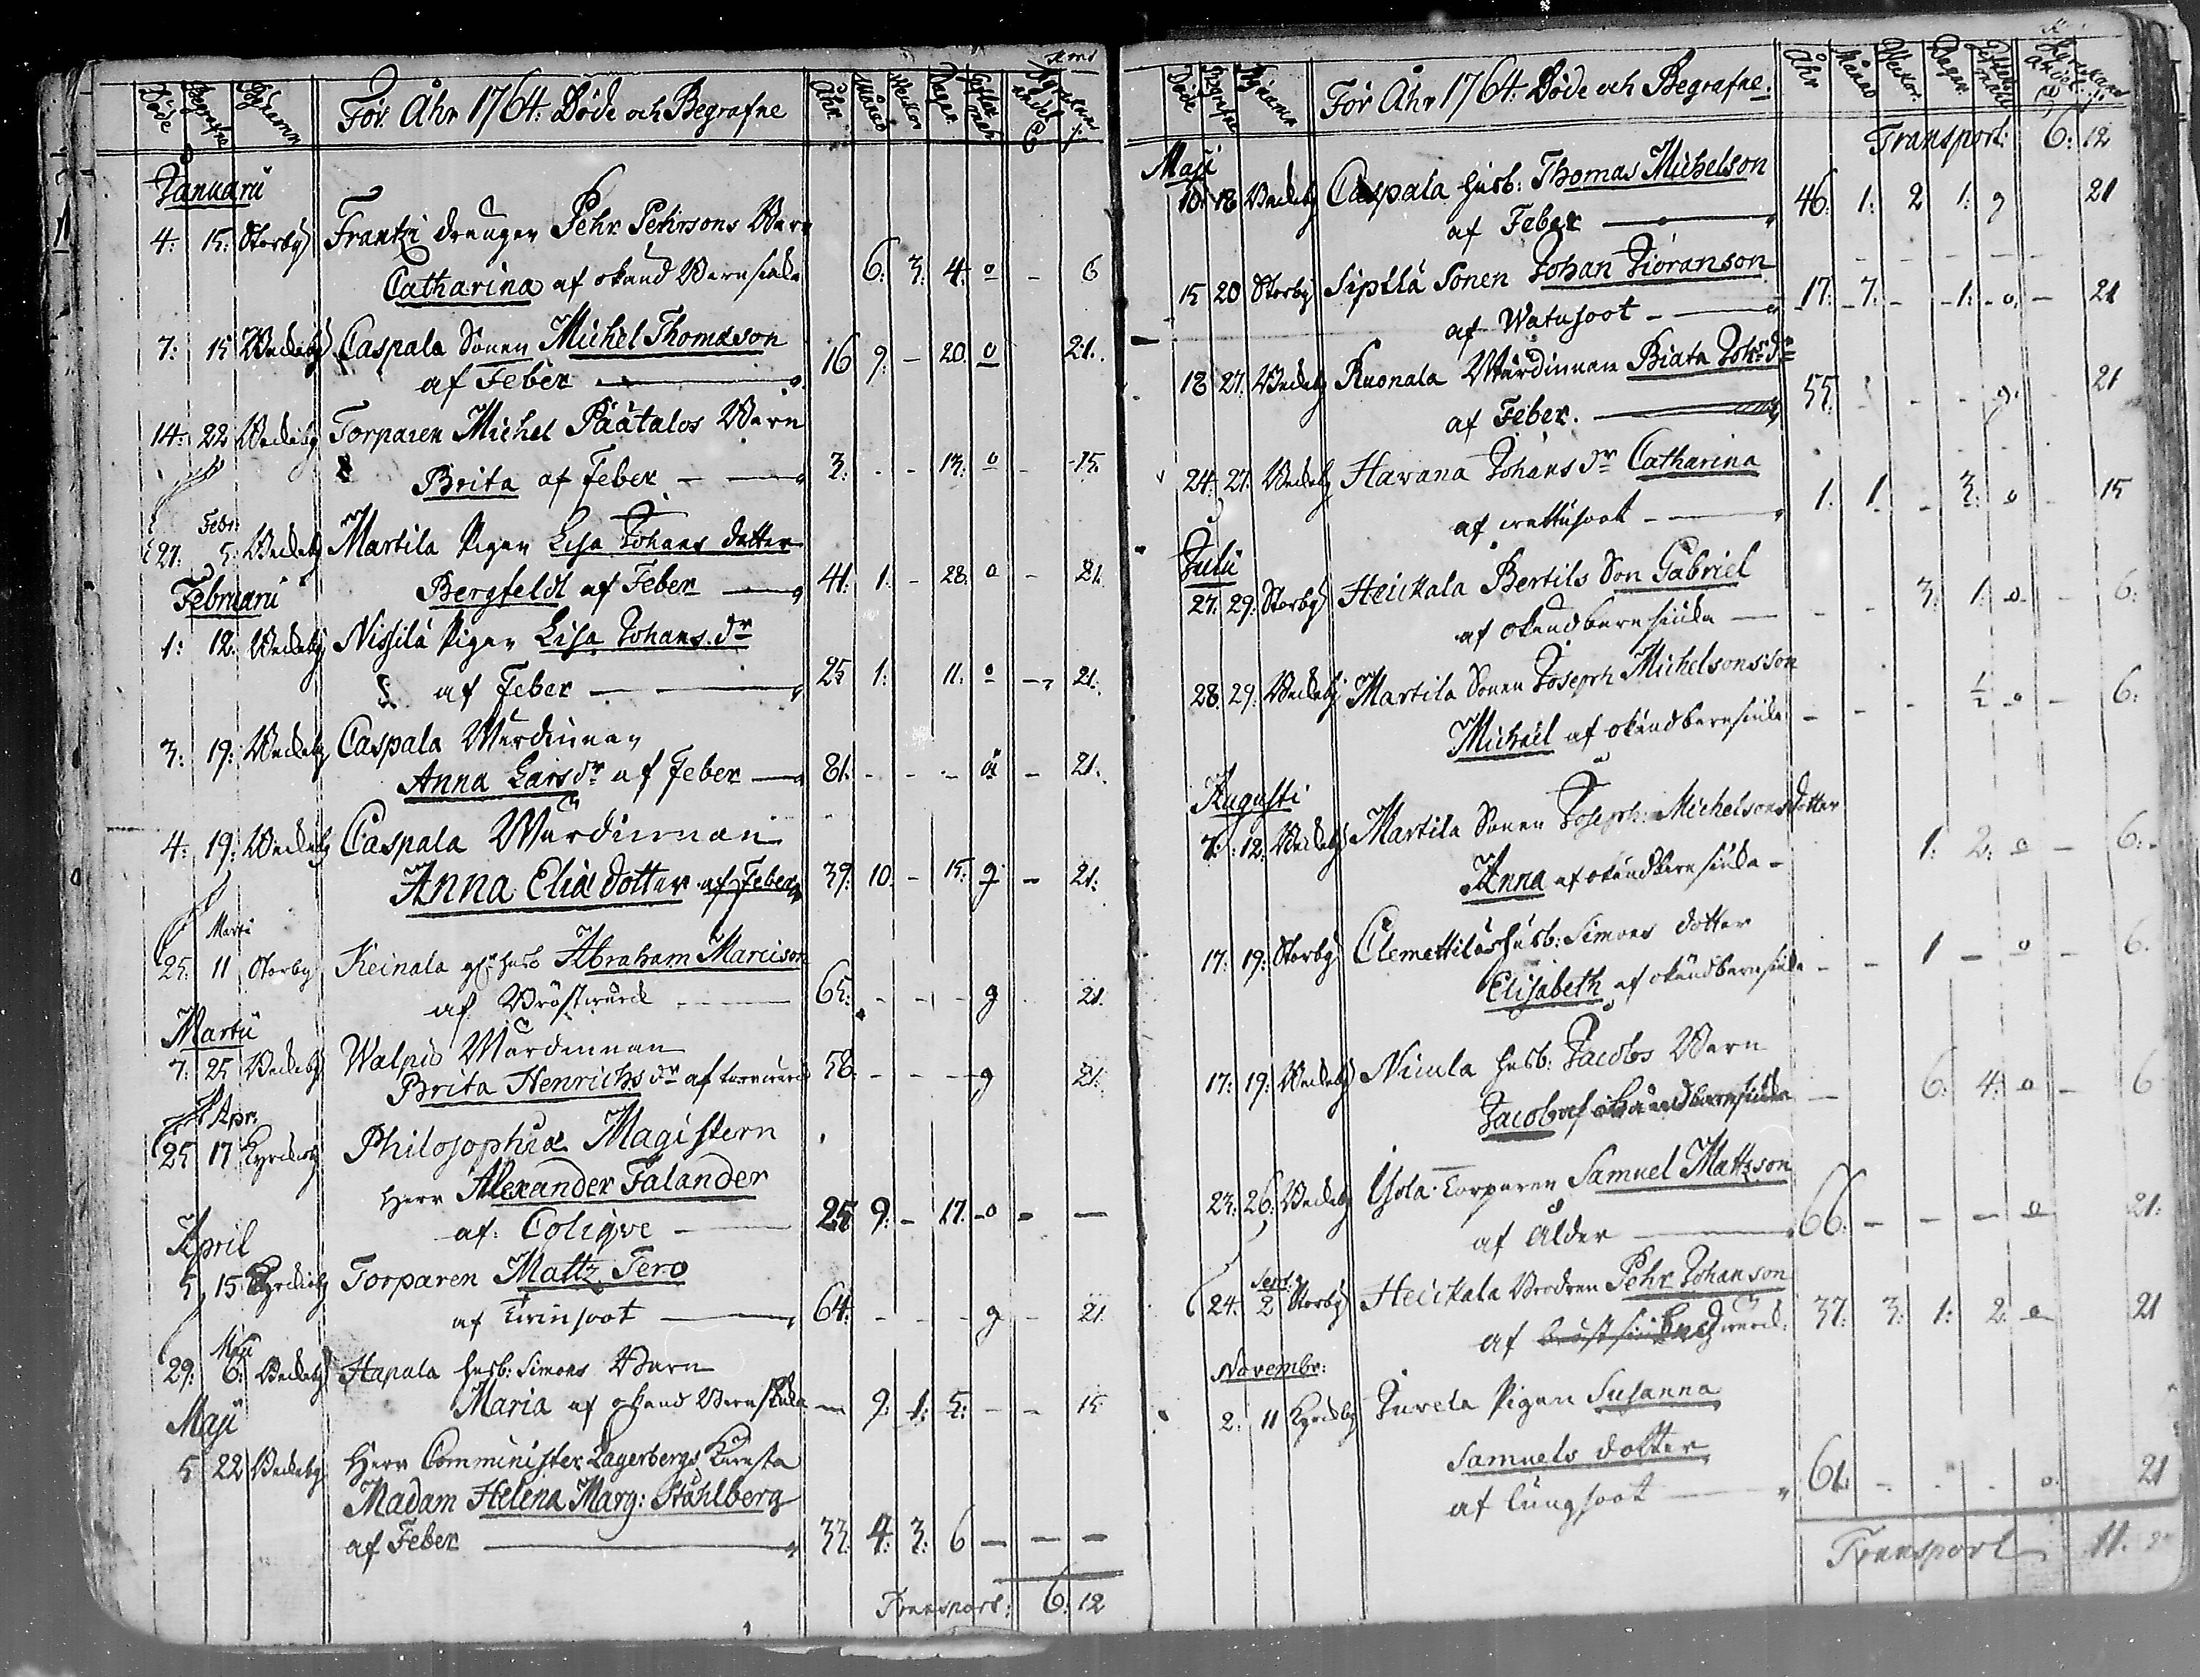 Döde Begrafne Byarne För Åhr 1764: Döde och Begrafne Åhr Månad Wekor Dagar
Januarii
4: 15: Storby Frantzi drengen Pehr Pehrsons Barn
Catharina af okänd Barnsiuka 6: 3: 4: o - 6
7: 15 Wedeby Caspala Sonen Michel Thomasson
af Feber 16 9: - 20. o 21.
14: 22 Wedeby Torparen Michel Päätalos Barn
Brita af Feber 3: - - 13: o - 15.
Febr:
27: 5: Wedeby Martila Pigan Lisa Johans dotter
Bergfeldt af Feber 41: 1: - 28: o - 21.
Februarii
1: 12: Wedeby Nissilä Pigan Lisa Johans dr
af Feber 25 1: 11: o - 21.
3: 19: Wedeby Caspala Wärdinnan
Anna Lars dr af Feber 81: - - - - 21.
4: 19: Wedeby Caspala Wärdinnan
Anna Eliæ dotter af Feber 39: 10: - 15: g - 21:
Martii
25: 11 Storby Keinala husb Abraham Marcison
af Bröstwärck 65: - - - g 21.
Martii
7: 25 Wedeby Walpis Wärdinnan
Brita Henrichs dr af 58: - - - g 21:
Apr.
25 17 Kyrckoby Philosophiæ Magistern
Herr Alexander Falander
af: Coliqve 25 9: - 17. - o - -
April
5 15 Kyrckoby Torparen Mattz Tero
af Twinsoot 64: - - - g - 21.
Maji
29: 6: Wedeby Hapala husb: Simons Barn
Maria af okänd Barnsiuka 9: 1: 5: - - 15
Maji
5 22 Wedeby Herr Comminister Lagerbergs Kiäresta
Madam Helena Marg: Ståhlberg
af Feber 33: 4: 3: 6 - - -
Transport: 6: 12
Döde Begrafne Byarne För Åhr 1764: Döde och Begrafne: Åhr Månad Wekor: Dagar
Transport: 6: 12
Maji
10: 18 Wedeby Caspala husb: Thomas Michelson
af Feber 46: 1: 2 1: g 21
15 20 Storby Sipilä Sonen Johan Giöranson
af Watusoot 17: 7: - 1: o - 21
18 27. Wedeby Ruonala Wärdinnan Biata Johs dr
af Feber. 55: - - - g. - 21
24: 27. Wedeby Havana Johans dr Catharina
af wattusoot 1: 1 - 3: o - 15
Julii
27: 29: Storby Heickala Bertils Son Gabriel
af okänd barnsiuka - - 3: 1: o - 6:
28: 29: Wedeby Martila Sonen Joseph Michelsons son
Michaël af okänd barnsiuka - - - 1/2 o - 6:
Augusti
7: 12: Wedeby Martila Sonen Joseph: Michelsons dotter
Anna af okänd barnsiuka - 1: 2: o - 6:
17: 19: Storby Clemettiläs husb: Simons dotter
Elisabeth af okänd barnsiuka - - 1 - o - 6.
17: 19: Wedeby Nicula husb: Jacobs Barn
Jacob af okänd barnsiuka - 6: 4: o - 6
23: 26: Wedeby Torparen Samuel Mattzson
af Ålder 66: - - - o 21:
Sept.
24: 2 Storby Heickala Brodren Pehr Johanson
af 37: 3: 1: 2: o 21
Novembr:
2: 11 Kyrckoby Juvela Pigan Susanna
Samuels dotter
af lungsoot 61: - - - o. 21
Transport 11: